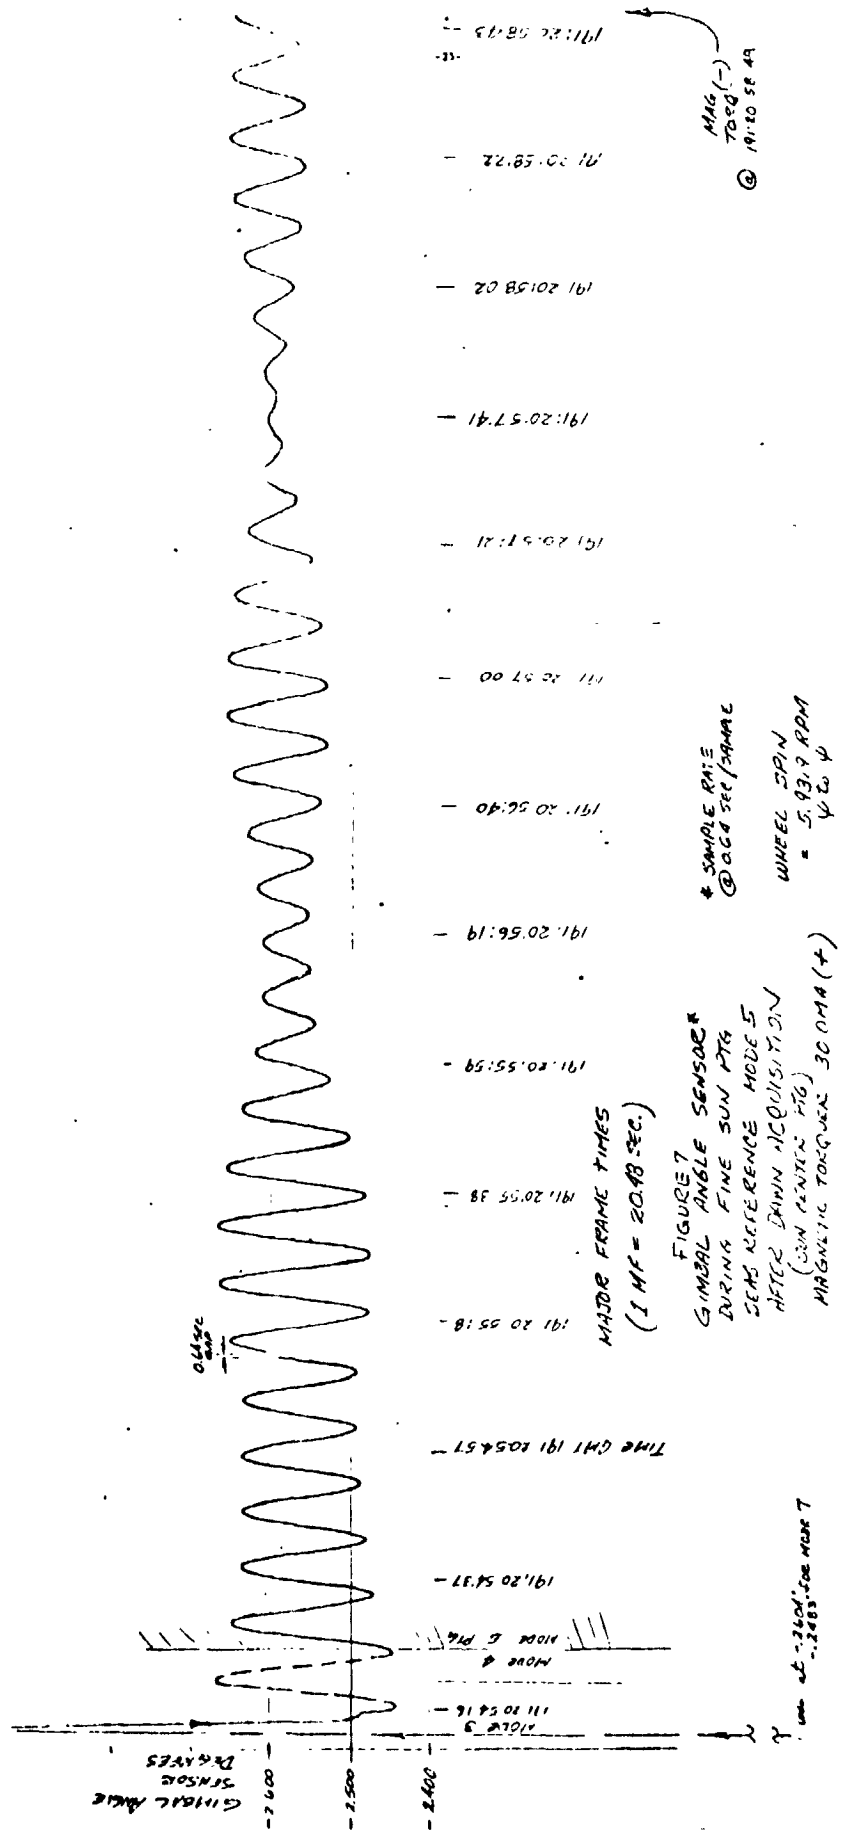 GIMBAL ANGLE
SENSOR
DEGREES
-2.600
-2.500
-2.400
MODE 3
191 20 54 16
MODE 4
MODE 5 PTG
191:20 54:37
TIME GMT 191 20:54:57
191 20 55:18
191:20:55 38
191:20:55:59
191:20:56:19
191:20 56:40
191 20 57 00
191 20:57:21
191:20:57:41
191 20:58 02
191 20:58:22
191:20 58:43
0.64 SEC
GAP
MAJOR FRAME TIMES
(1 MF = 20.48 SEC.)
FIGURE 7
GIMBAL ANGLE SENSOR*
DURING FINE SUN PTG
SEAS REFERENCE MODE 5
AFTER DAWN ACQUISITION
(SUN CENTER PTG)
MAGNETIC TORQUER 30 DMA (+)
* SAMPLE RATE
@ 0.64 SEC/SAMPLE
WHEEL SPIN
= 5.9319 RPM
ψ to ψ
MAG (-)
TORQ
@ 191:20 58 49
at -.2604° for MODE 7
-.2483°